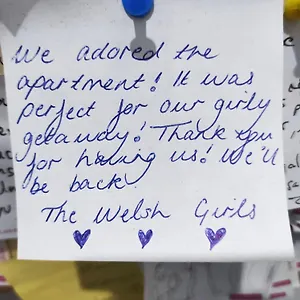 We adored the
apartment! It was
perfect for our girly
getaway! Thank you
for having us! We'll
be back.
The Welsh Girls